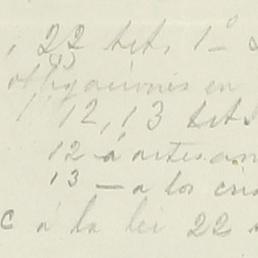 , 22 tet. 1º
obligaciones en
1 12, 13 tet.
12 a artesan
13 — a los cria
c a la lei 22